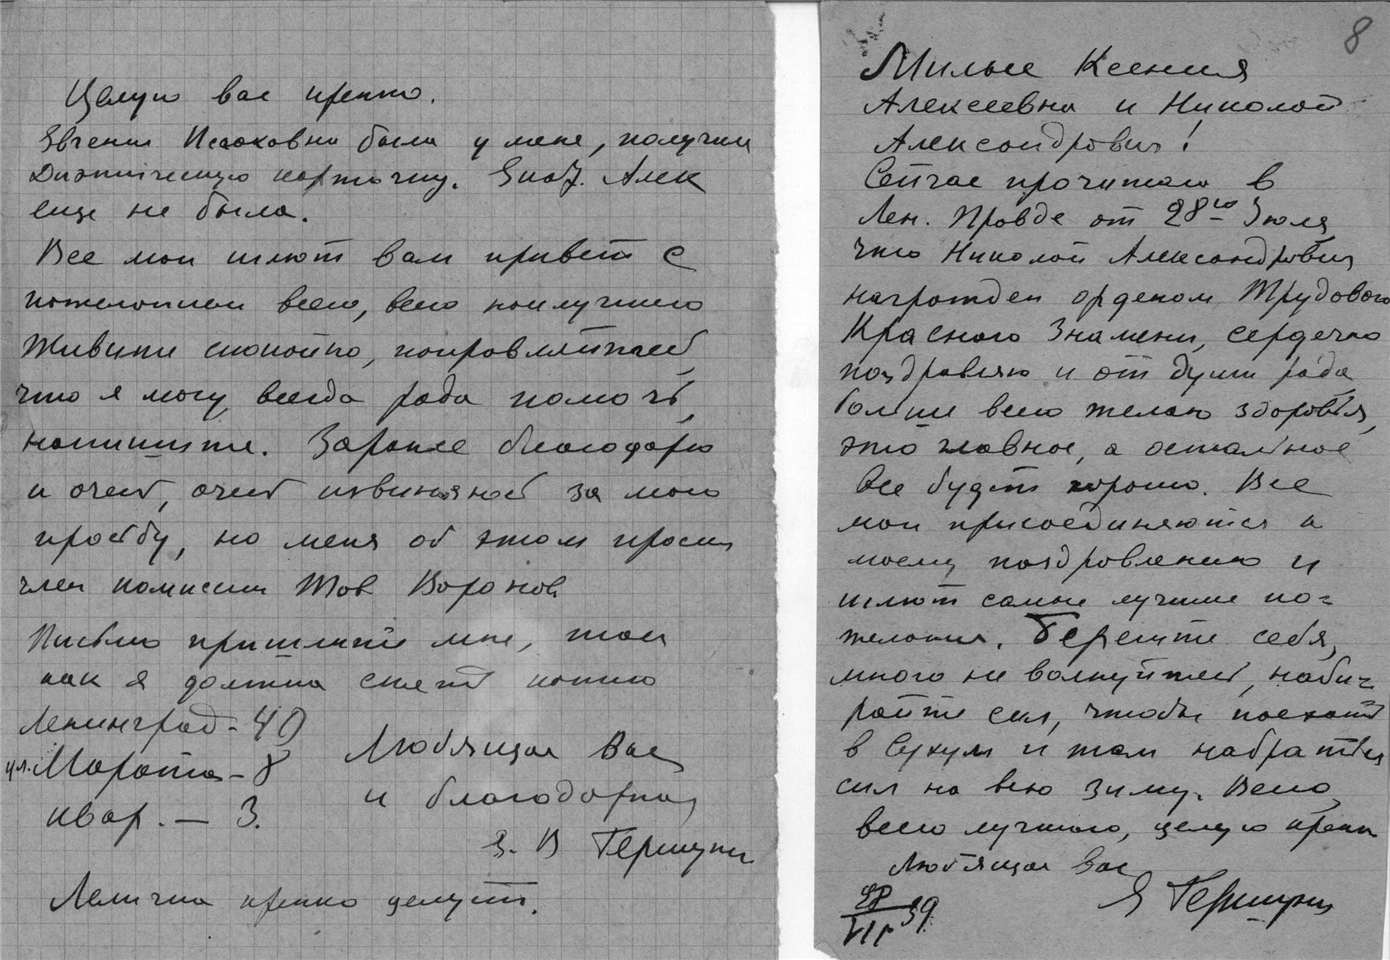 Целую вас крепко.
Евгения Исааковна была у меня, получил
Диэтическую карточку. Алек
еще не была.
Все мои шлют вам привет с
пожеланием всего, всего наилучшего
Живите спокойно, поправляйтесь,
что я могу, всегда рада помочь,
напишите. Заранее благодарю
и очень, очень извиняюсь за мою
просьбу, но меня об этом просил
член комиссии Тов Воронов
Письмо пришлите мне, так
как я должна снять копию
Ленинград - 40
ул. Марата - 8
квар. — 3.
Любящая Вас
и благодарная
В Гершуни
Лелична крепко целует.
8
Милые Ксения
Алексеевна и Николай
Александрович!
Сейчас прочитала в
Лен. Правде от 28го Июля,
что Николай Александрович
награжден орденом Трудового
Красного Знамени, сердечно
поздравляю и от души рада,
больше всего желаю здоровья,
это главное, а остальное
все будет хорошо. Все
мои присоединяются к
моему поздравлению и
шлют самые лучшие по=
желания. Берегите себя,
много не волнуйтесь, наби-
райте сил, чтобы поехать
в Сухум и там набраться
сил на всю зиму. Всего,
всего лучшего, целую крепко
Любящая Вас
Гершуни
28/VII 39.